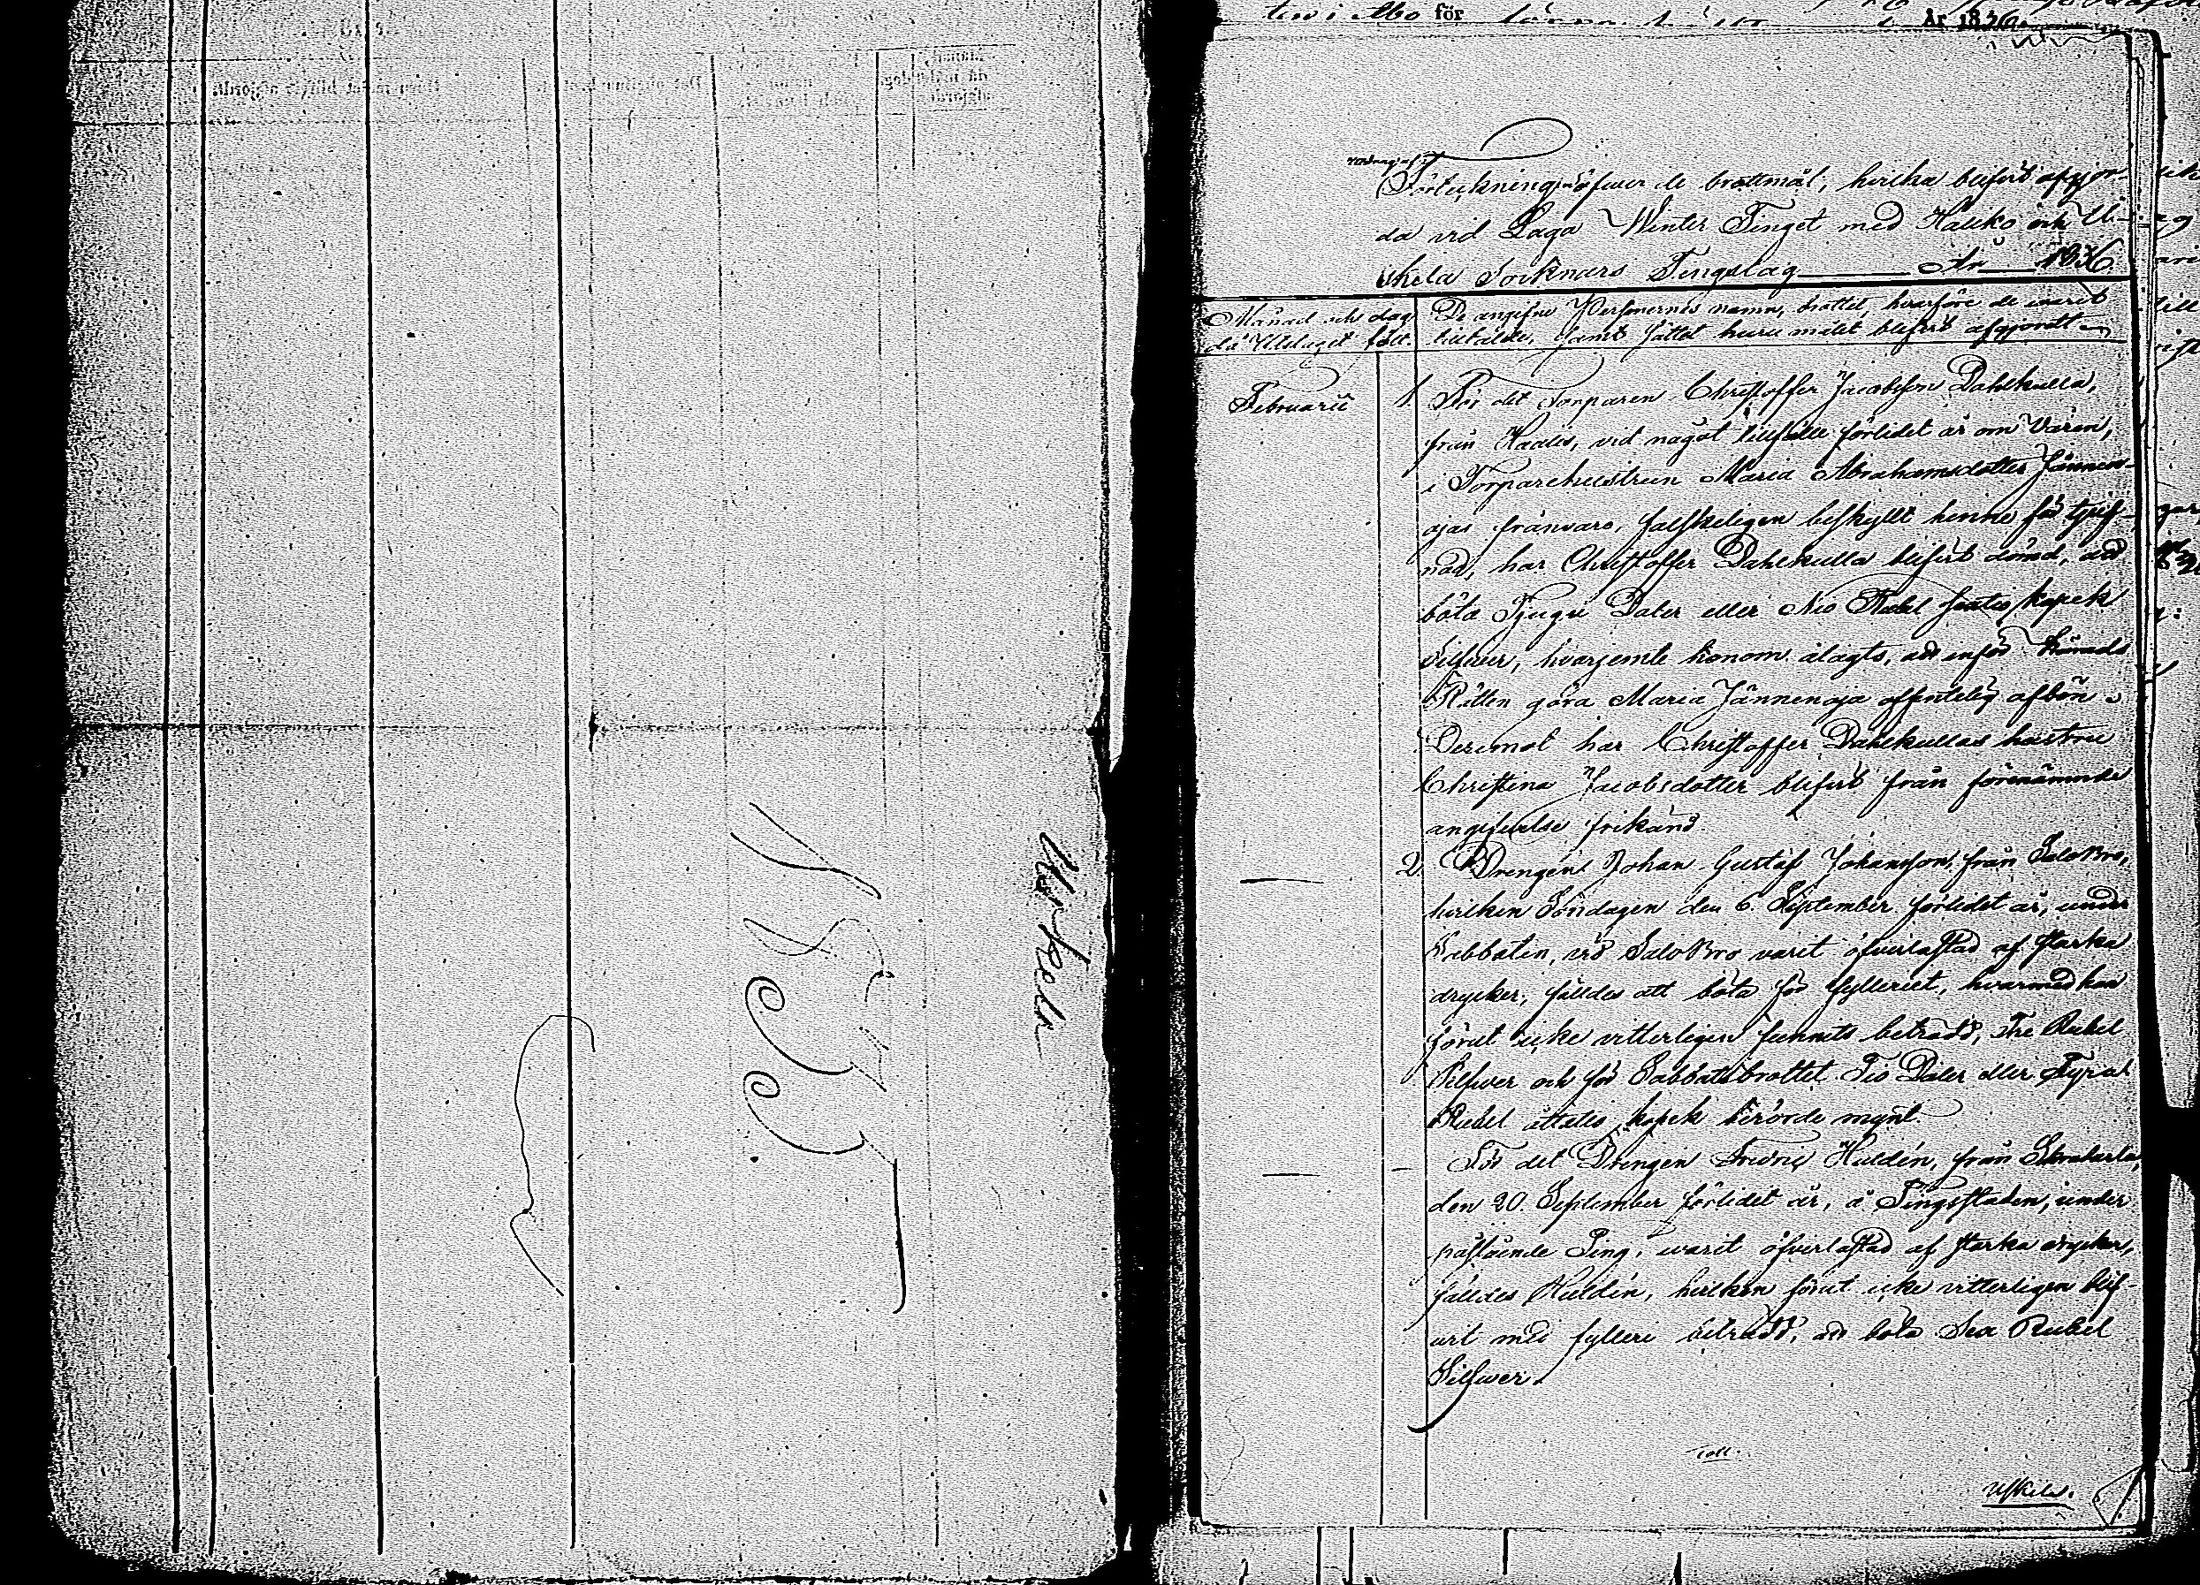 Uskela
ten i Åbo för År 1836.
Utdrag af
Förteckningen öfwer de brottmål, hvilka blifvit afgjor-
da vid Laga Winter Tinget med Haliko och U-
skela Socknars Tingslag År 1836.
Månad och dag
då Utslaget föll.
De angifne Personernes namn, brottet, hvarföre de warit
tilltalde, samt sättet huru målet blifvit afgjordt.
Februarii
1. För det Torparen Christoffer Jacobsson Dahlkulla,
från Kaalis, vid något tillfälle förlidet år om Våren,
i Torparehustrun Maria Abrahamsdotter Jännen-
ojas frånvaro, falskeligen beskyllt henne för tjuf-
nad, har Christoffer Dahlkulla blifvit dömd, att
böta Tjugu Daler eller Nio Rubel sextio kopek
Silfwer, hvarjemte honom ålagts, att inför Härads
Rätten göra Maria Jännenoja offentelig afbön.
Deremot har Christoffer Dahlkullas hustru
Christina Jacobsdotter blifvit från förenämnde
angifvelse frikänd.
2. Drengen Johan Gustaf Johansson, från Salo Bro,
hvilken Söndagen den 6 September förlidet år, under
Sabbaten, vid Salo Bro varit öfverlastad af starka
drycker, fälldes att böta för fylleriet, hvarmed han
förut icke vitterligen funnits beträdd, Tre Rubel
Silfver och för Sabbatsbrottet Tio Daler eller Fyra
Rubel åttatio kopek berörde mynt.
För det Drengen Fredric Huldén, från
den 20. September förlidet år, å Tingsstaden, under
påstående Ting, warit öfverlastad af starka drycker,
fälldes Huldén, hvilken förut icke vitterligen blif-
vit med fylleri beträdd, att böta Sex Rubel
Silfwer.
Uskela.